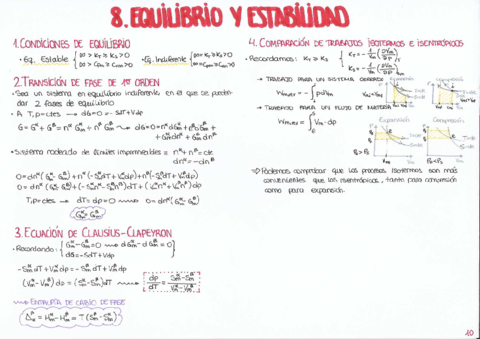 8. EQUILIBRIO Y ESTABILIDAD
1. CONDICIONES DE EQUILIBRIO
• Eq. Estable { ∞ > K_T ≥ K_S > 0
∞ > C_pm ≥ C_vm > 0
• Eq. Indiferente { ∞ = K_T ≥ K_S > 0
∞ = C_pm ≥ C_vm > 0
2. TRANSICIÓN DE FASE DE 1er ORDEN
• Sea un sistema en equilibrio indiferente en el que se pueden dar
2 fases de equilibrio
• A T, p = ctes → dG = 0 = -SdT + Vdp
G = G^α + G^β = n^α G_m^α + n^β G_m^β → dG = 0 = n^α dG_m^α + n^β dG_m^β +
+ G_m^α dn^α + G_m^β dn^β
• Sistema rodeado de límites impermeables = n^α + n^β = cte
dn^α = -dn^β
0 = dn^α (G_m^α - G_m^β) + n^α (-S_m^α dT + V_m^α dp) + n^β (-S_m^β dT + V_m^β dp)
0 = dn^α (G_m^α - G_m^β) + (-S_m^α n^α - S_m^β n^β) dT + (V_m^α n^α + V_m^β n^β) dp
T, p = ctes → dT = dp = 0 → 0 = dn^α (G_m^α - G_m^β)
G_m^α = G_m^β
3. ECUACIÓN DE CLAUSIUS-CLAPEYRON
• Recordando: { G_m^α - G_m^β = 0 → dG_m^α - dG_m^β = 0
dG = -SdT + Vdp
-S_m^α dT + V_m^α dp = -S_m^β dT + V_m^β dp
(V_m^α - V_m^β) dp = (S_m^α - S_m^β) dT → dp/dT = (S_m^α - S_m^β)/(V_m^α - V_m^β)
ENTALPÍA DE CAMBIO DE FASE
= H_m^α - H_m^β = T (S_m^α - S_m^β)
4. COMPARACIÓN DE TRABAJOS ISOTERMOS E ISENTRÓPICOS
• Recordamos: K_T ≥ K_S
→ TRABAJO PARA UN SISTEMA CERRADO
Expansión
Compresión
→ TRABAJO PARA UN FLUJO DE MATERIA
Expansión
Compresión
⇒ Podemos comprobar que los procesos isotermos son más
convenientes que los isentrópicos, tanto para compresión
como para expansión.
10